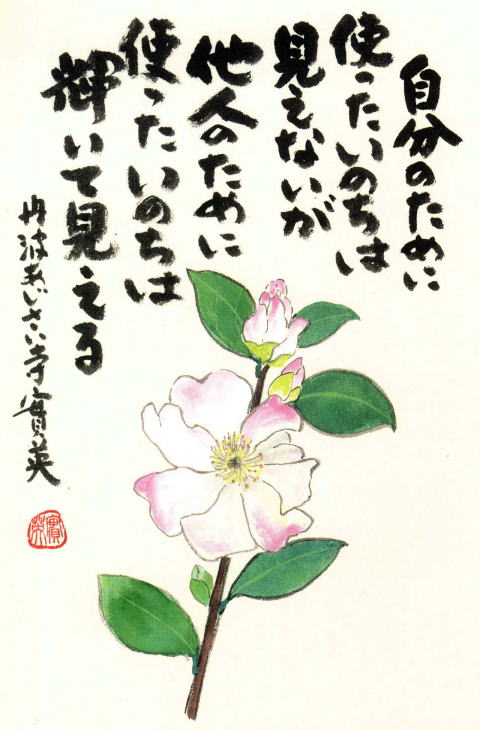 自分のために
使ったいのちは
見えないが
他人のために
使ったいのちは
輝いて見える
丹波あじさい寺寳英
寳英